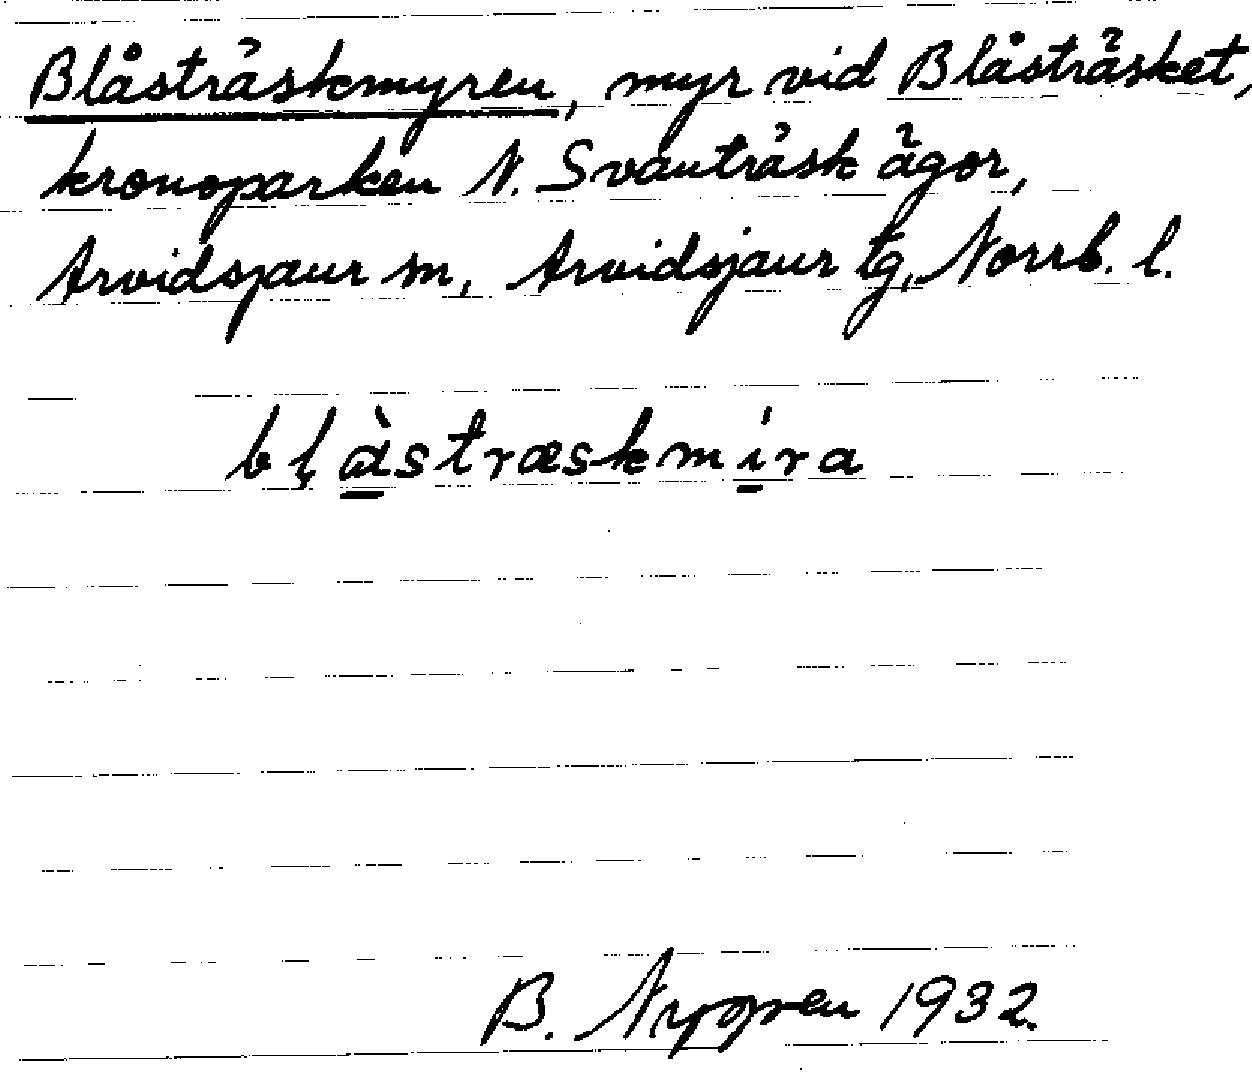 Blåsträskmyren, myr vid Blåsträsket,
kronoparken N. Svanträsk ägor,
Arvidsjaur sn, Arvidsjaur tg, Norrb. l.
bḷà̠stræskmì̠ra
B. Nygren 1932.